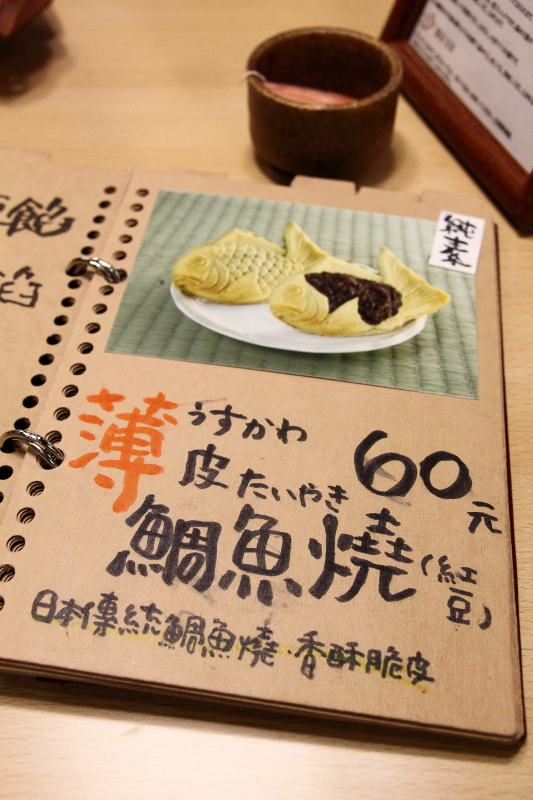 餡
純素
薄皮 うすかわ
鯛魚燒 たいやき (紅豆)
60元
日本傳統鯛魚燒·香酥脆皮